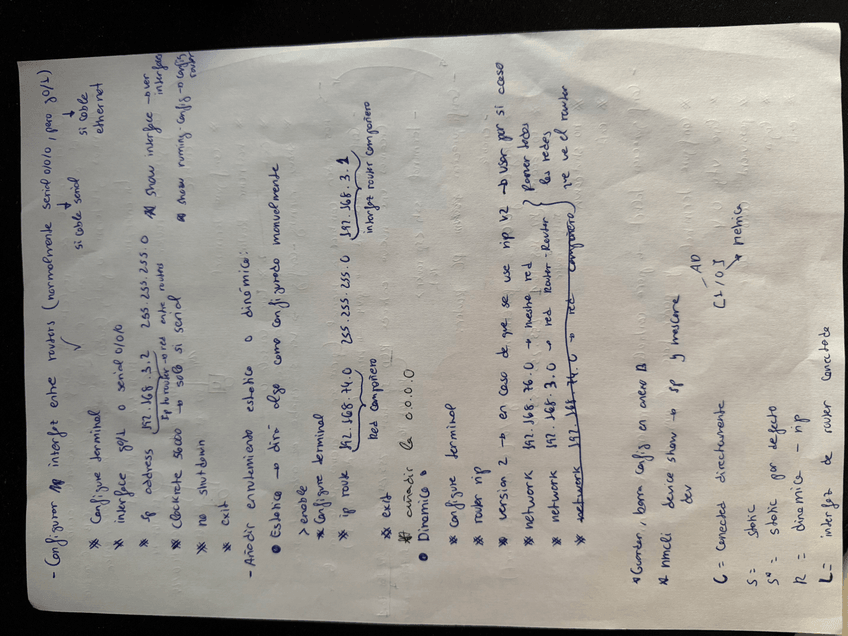 - Configurar interfaz entre routers (normalmente serial 0/0/0, pero g0/1)
si cable serial
si cable ethernet
* configure terminal
* interface g0/1 o serial 0/0/0
* ip address 192.168.3.2 255.255.255.0
ip tu router → red entre routers
* clockrate → solo si serial
* no shutdown
* exit
* show interface → ver interfaces
* show runing-config → config router
- Añadir enrutamiento estatico o dinámico:
• Estatico → dirá algo como configurado manualmente
> enable
* configure terminal
* ip route 192.168.74.0 255.255.255.0 192.168.3.1
Red compañero
interfaz router compañero
* exit
* añadir la 0.0.0.0
• Dinamico
* configure terminal
* router rip
* version 2 → en caso de que se use rip v2 → usar por si acaso
* network 192.168.76.0 → nuestra red
* network 192.168.3.0 → red Router-Router
* network 192.168.74.0 → red compañero
Poner todas las redes que ve el router
* Guardar, borra config en anexo B
* nmcli device show → ip y mascara
dev
C = conected directamente
S = static
S* = static por defecto
R = dinamica - rip
L = interfaz de router conectada
[1/0]
AD
metrica